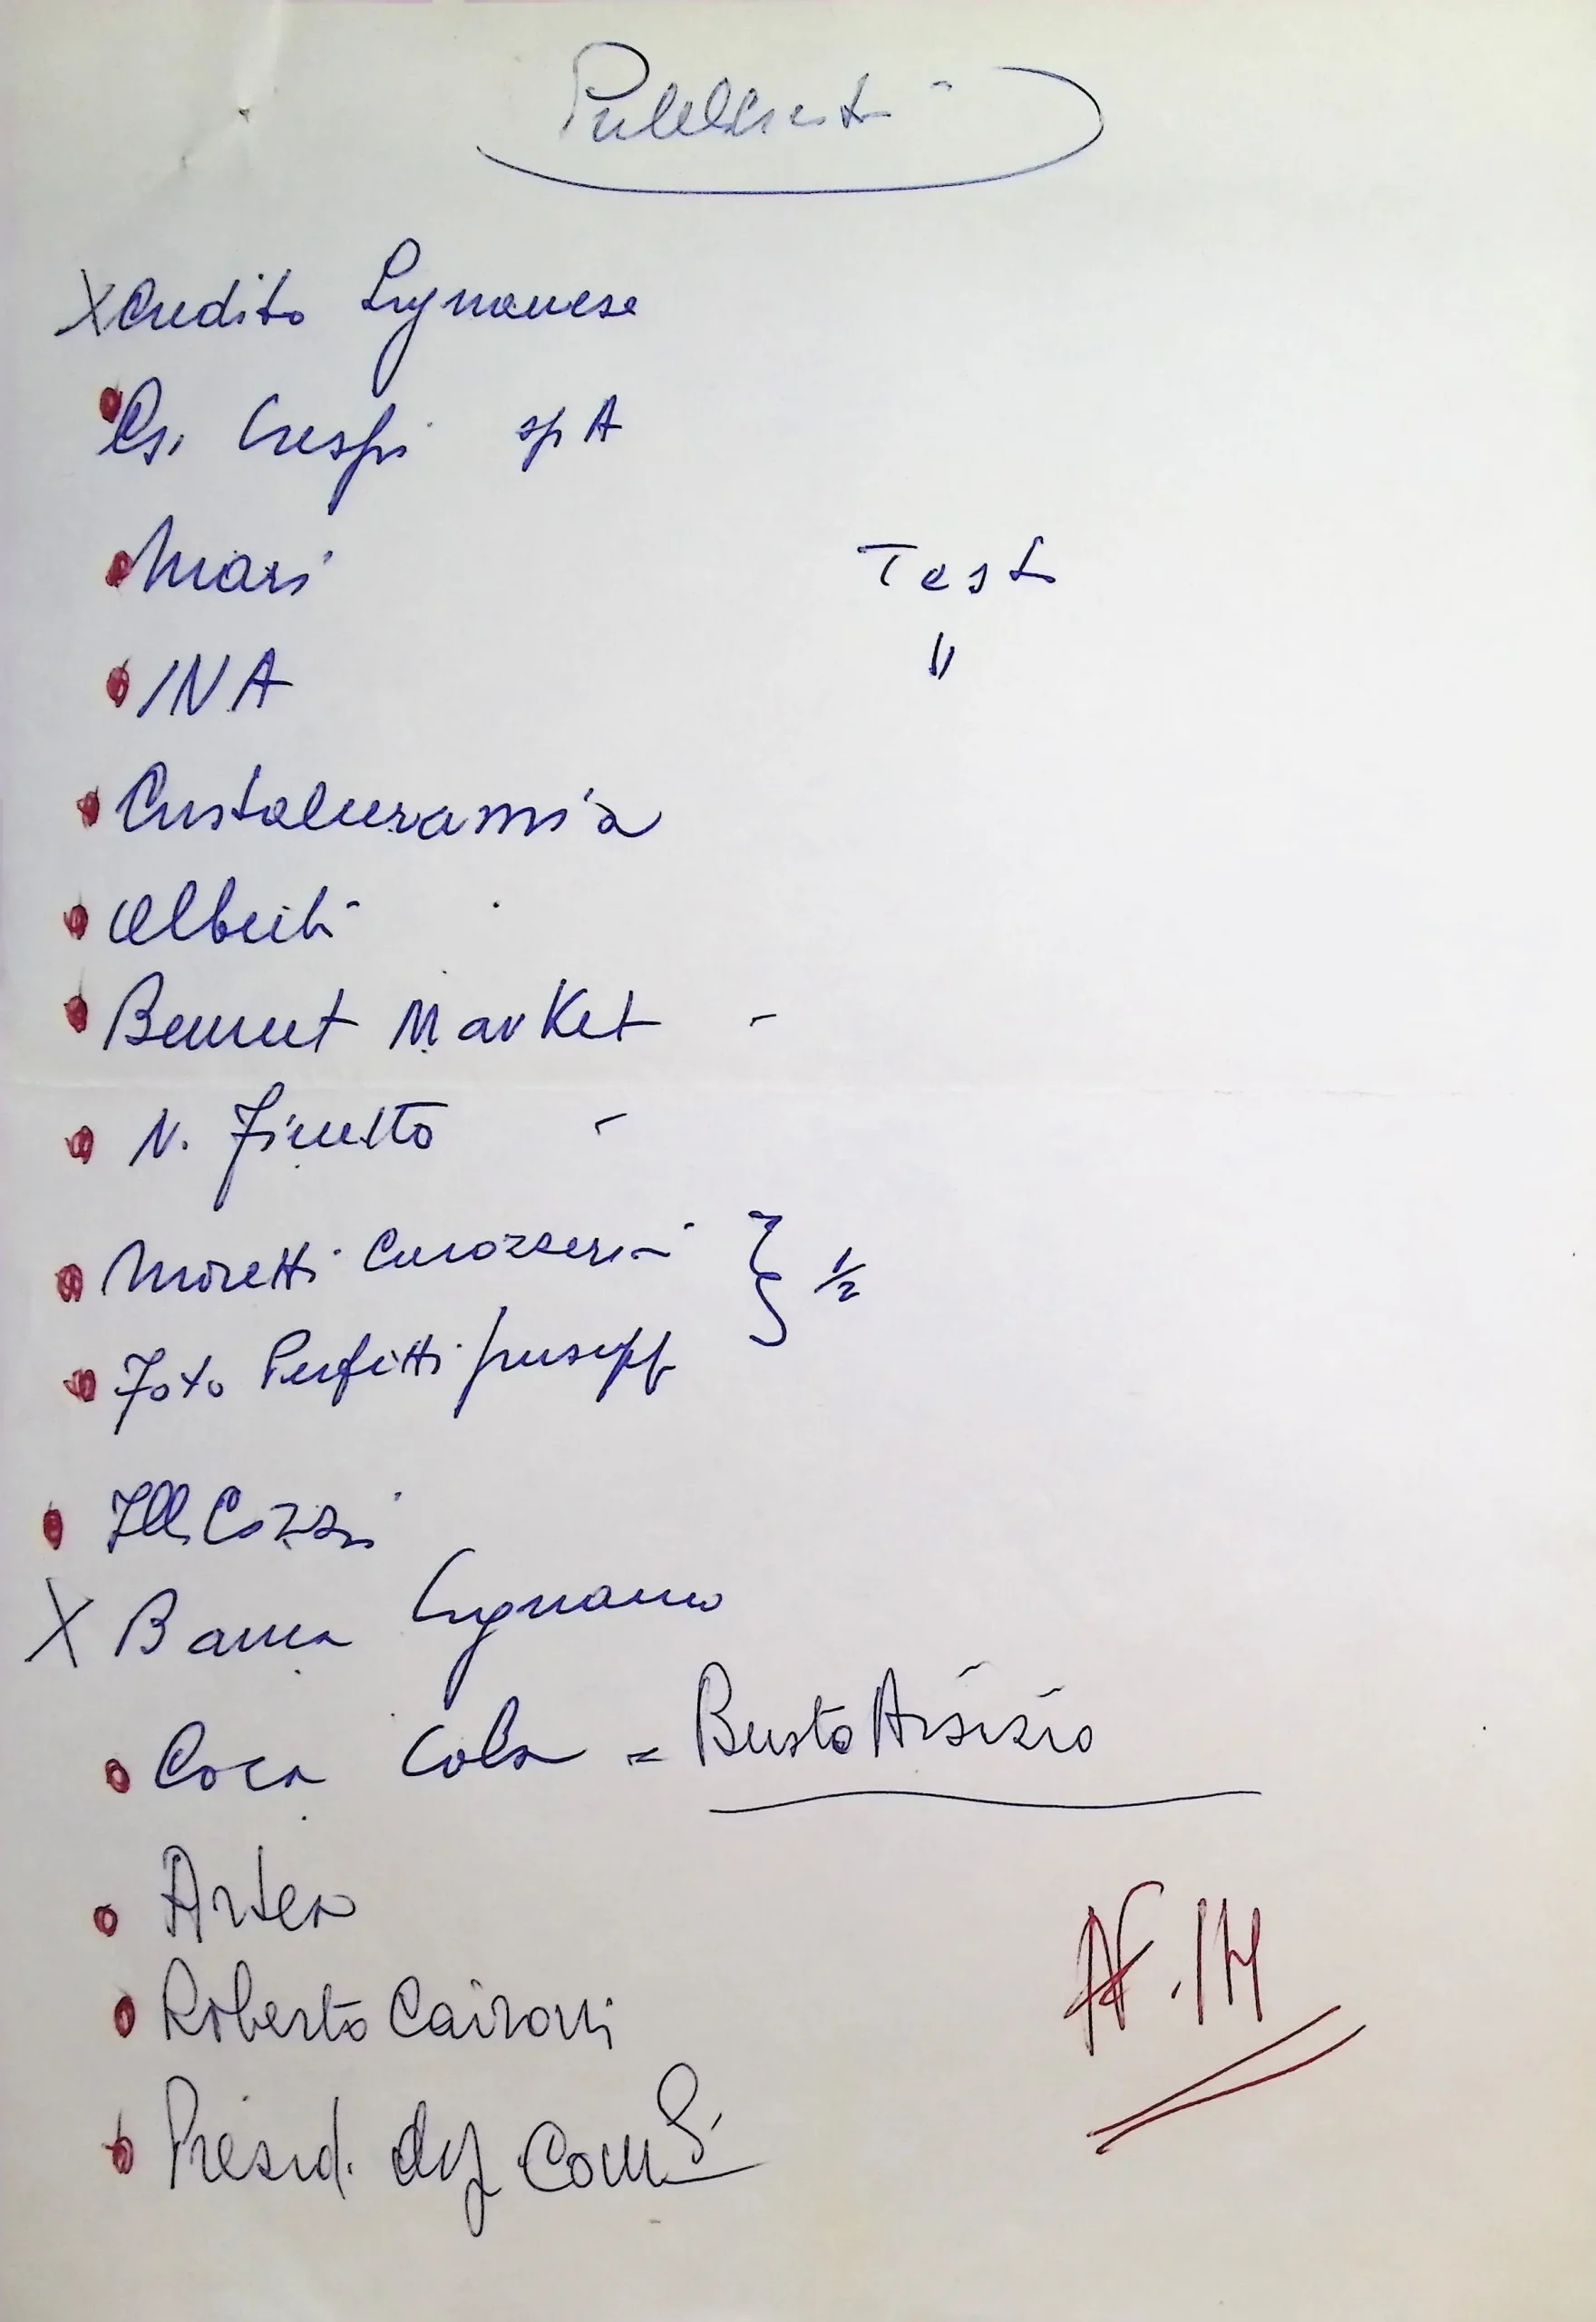 Pubblicità
X Credito Legnanese
Crespi spA
Mari Test
INA "
Cristalceramia
Alberti
Bennet Market -
N. Finetto -
Moretti Carozzeria } 1/2
Foto Perfetti Giusepp
Flli Cozzi
X Banca Legnano
Coca Cola = Busto Arsizio
Artea
Roberto Caironi
Presid. del Com